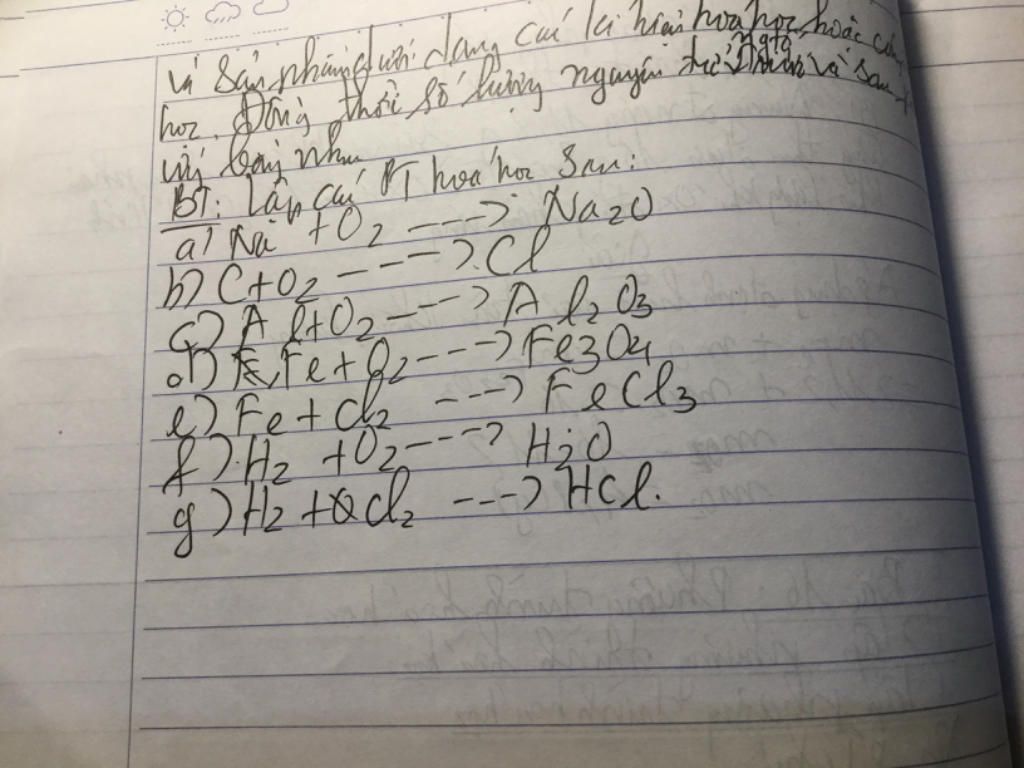 và sản phẩm dưới dạng các kí hiệu hoá học hoặc công
học. Đồng thời số lượng nguyên tử ngto và sau
bằng nhau
BT: Lập các PT hoá học sau:
a) Na + O2 ---> Na2O
b) C+O2 ---> Cl
c) Al+O2 ---> Al2O3
d) Fe+O2 ---> Fe3O4
e) Fe+Cl2 ---> FeCl3
f) H2 +O2 ---> H2O
g) H2 + Cl2 ---> HCl.